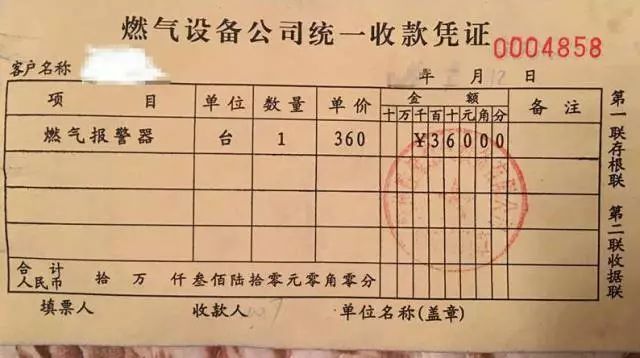 燃气设备公司统一收款凭证 0004858
客户名称 年 月 12 日
项目 单位 数量 单价 金额 备注
十万千百十元角分
燃气报警器 台 1 360 ¥36000
合计人民币 拾 万 仟叁佰陆拾零元零角零分
填票人 收款人 单位名称(盖章)
第一联存根联 第二联收据联